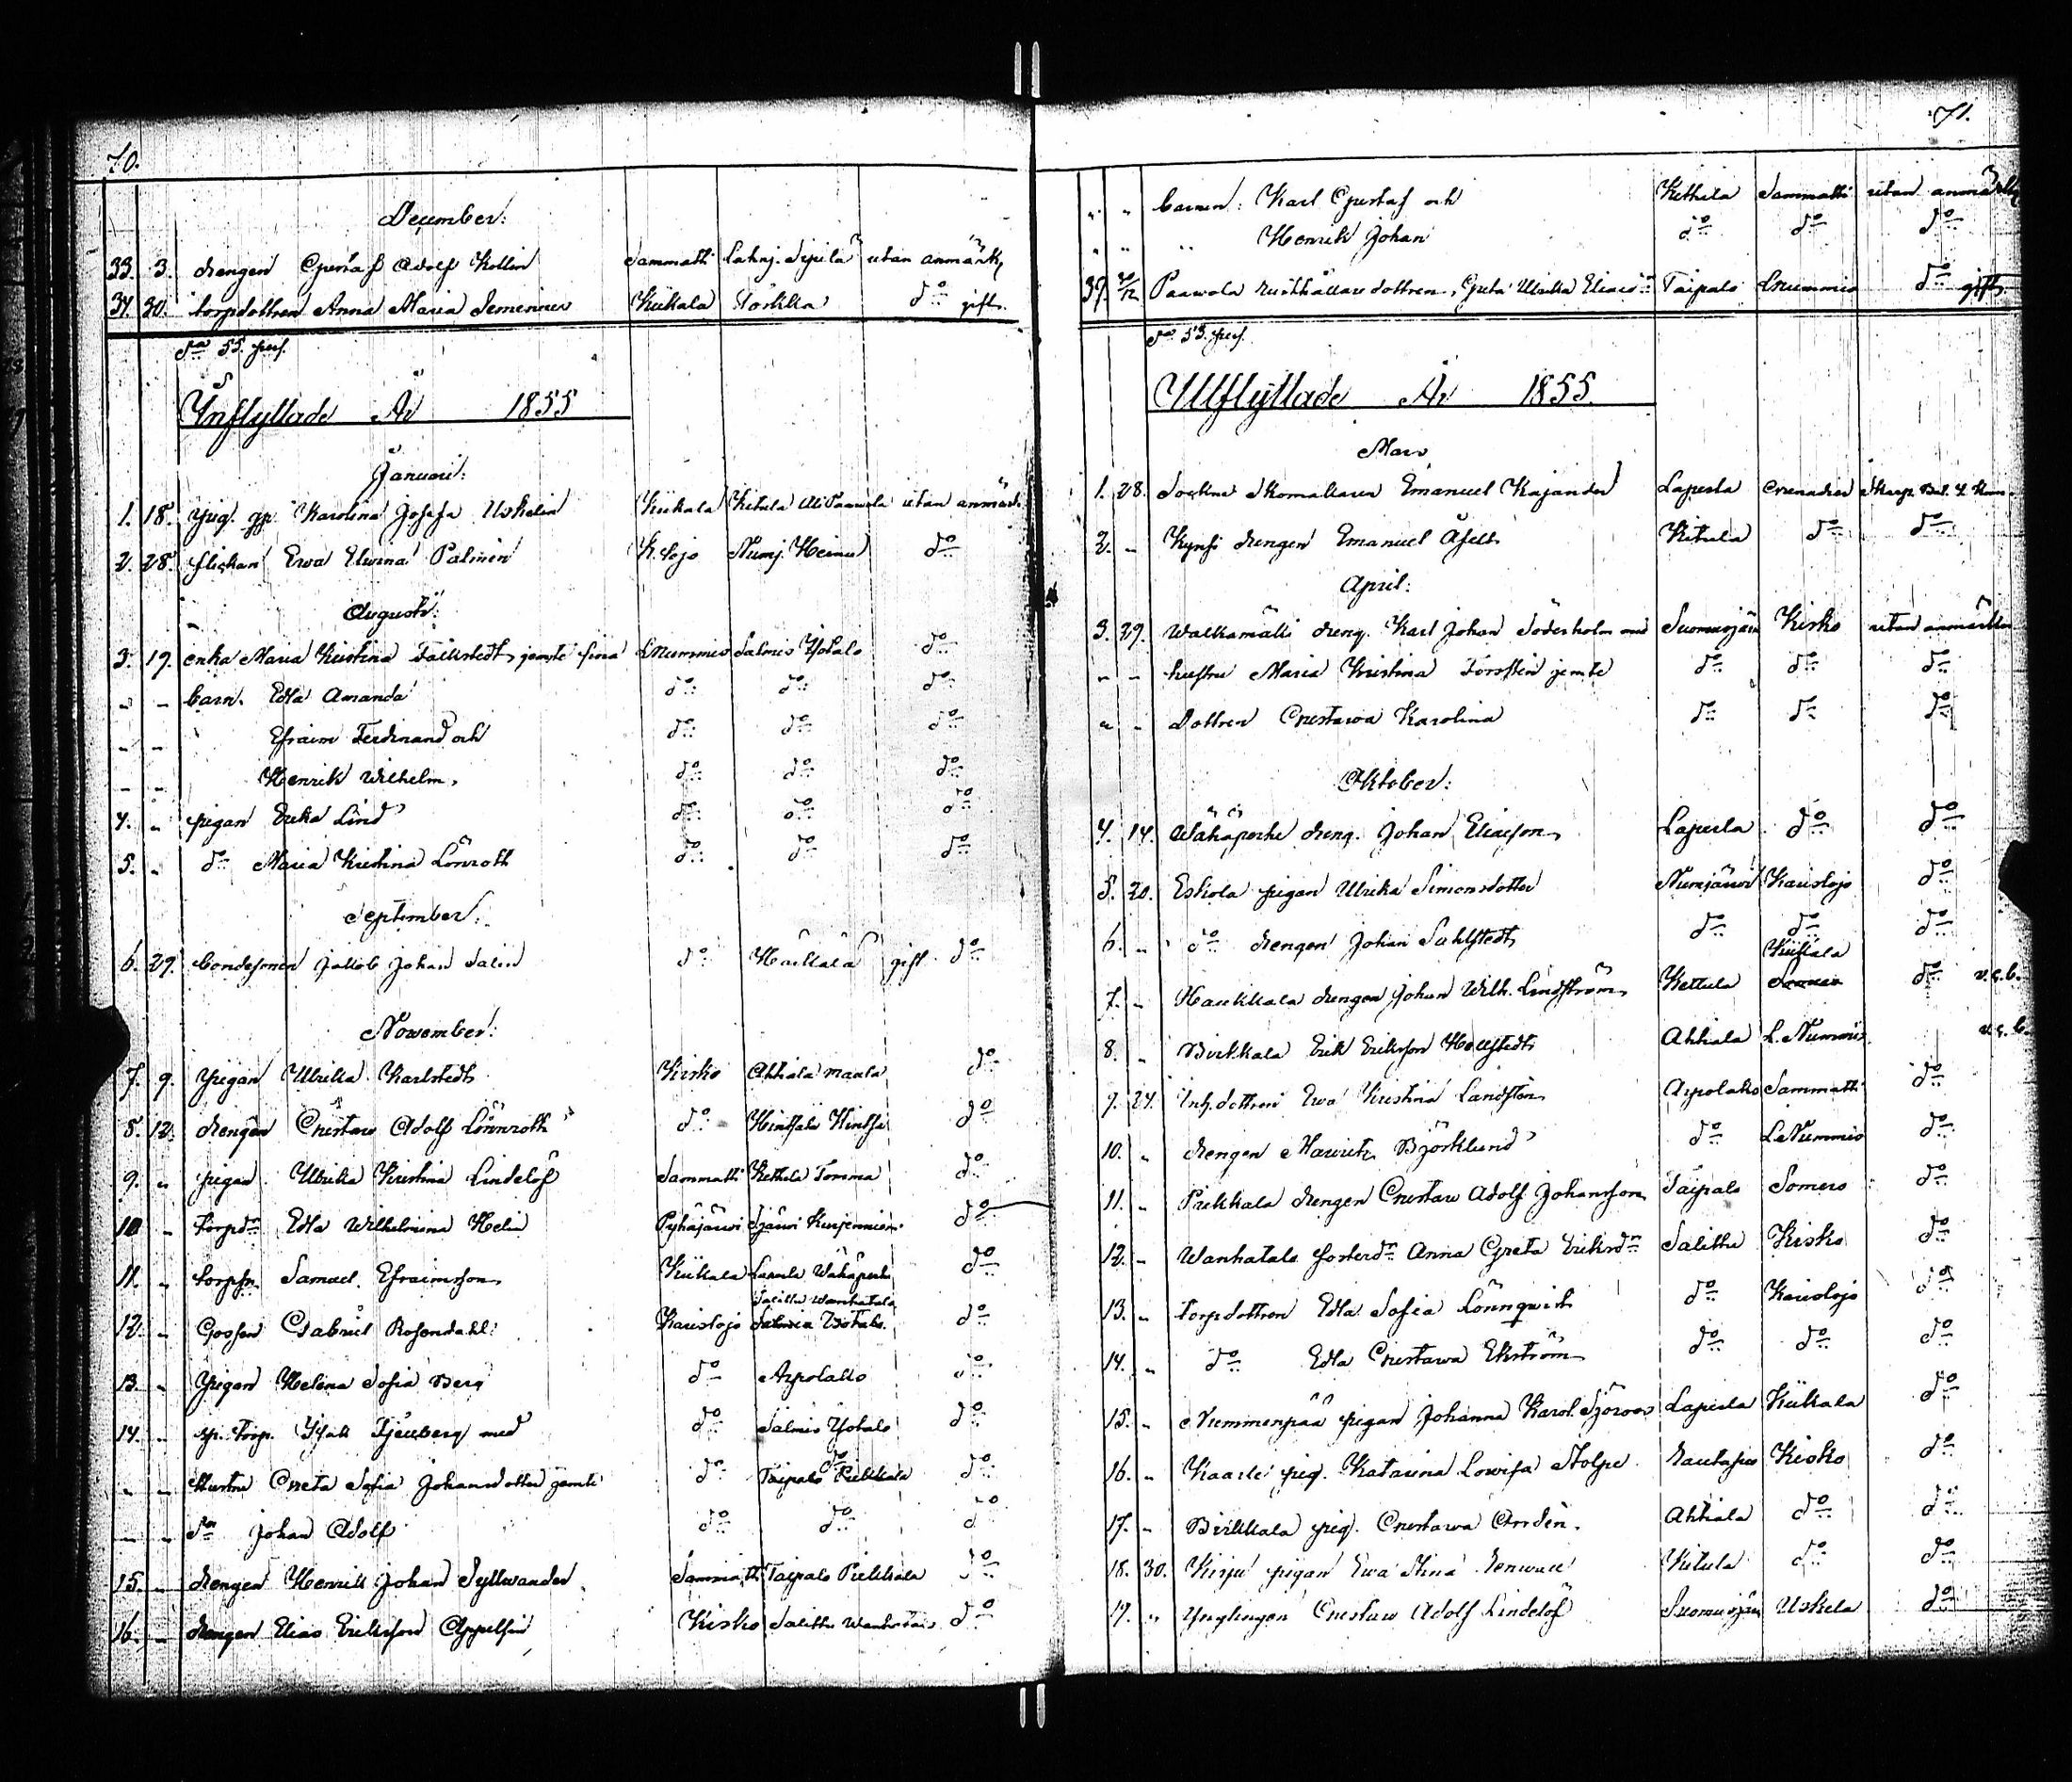 70.
December:
33. 3. drengen Gustaf Adolf Kollin Sammatti Lahnj. Sipilä utan anmärk,
34. 30. torpdottren Anna Maria Semenius Kiikala Torkkla do gift.
Sa 55. pers.
Inflyttade År 1855
Januari:
1. 18. pig. Karolina Josefa Uskelin Kiikala Kitula Ali Paavola utan anmärk.
2. 28. flickan Ewa Elwina Palmén K. Lojo Numj. Heinu do
Augusti:
3. 19. enka Maria Kristina Falkstedt, jemte sina L. Nummis Salmis Yotalo do
" " barn. Edla Amanda do do do
" " Efraim Ferdinand och do do do
" " Henrik Wilhelm, do do do
4. " pigan Erika Lind do do do
5. " do Maria Kristina Lönroth do do do
September:
6. 29. bondesonen Jakob Johan Salin do Härkälä gift do
November:
7. 9. Pigan Ulrika Karlstedt Kisko Ahtiala Maula do
8. 12. drengen Gustaw Adolf Lönnroth do Hintsala Hintsa do
9. " pigan Ulrika Kristina Lindelöf Sammatti Kettula Tomma do
10 " torpdr Edla Wilhelmina Helin Pyhäjärwi Sjärwi Kurjenniemi do
11. " torpsn. Samuel Efraimsson Kiikala Laperla Wähäperhe do
Salittu Wanhatalo
12. " Gossen Gabriel Rosendahl Karislojo Salmis Yotalo do
13. " Pigan Helena Sofia Berg do Arpolakko do
14. " sp. torp. Isak Sjeuberg med do Salmis Yotalo do
" " Hustru Greta Sofia Johansdotter jemte do Taipalo Pirkkala do
" " sn Johan Adolf do do do
15. " drengen Henrik Johan Syllwander Sammatti Taipalo Pirkkala do
16. " drengen Elias Eriksson Appelsin Kisko Salittu Wanhatalo do
71.
" " barnen: Karl Gustaf och Kettula Sammatti utan anmärkn
" " " Henrik Johan do do do
39. 30/12 Paawola rusthållare dottren, Greta Ulrika Eliasdr Taipalo L. Nummis do gift
Sa 53. pers.
Utflyttade År 1855.
Mars
1. 28. Socknesskomakaren Emanuel Kajander Laperla Grenadier
2. " Kynsi drengen Emanuel Aselt Kitula do do
April:
3. 29. Walkamälli dreng. Karl Johan Söderholm med Suomusjärvi Kisko utan anmärkn
" " hustru Maria Kristina Forsstén jemte do do do
" " Dottren Gustawa Karolina do do do
Oktober:
4. 14. Wähäperhe dreng. Johan Eliasson Laperla do do
5. 20. Eskola pigan Ulrika Simonsdotter Numjärwi Karislojo do
6. " do drengen Johan Sahlstedt do do do
Kiikala
7. " Haukkala drengen Johan Wilh. Lindström Kettula do v.s.b.
8. " Pirkkala Erik Eriksson Hellstedt Ahtiala L. Nummis v.s.b.
9. 24. Inh. dottren Ewa Kristina Landstén Arpolakko Sammatti do
10. " drengen Mauritz Björklund do L. Nummis do
11. " Pirkkala drengen Gustaw Adolf Johansson Taipalo Somero do
12. " Wanhatalo fosterdr Anna Greta Eriksdr Salittu Kisko do
13. " torpdottren Edla Sofia Lönnqwist do Karislojo do
14. " do Edla Gustawa Ekström do do do
15. " Nummenpää pigan Johanna Karol. Sjöroos Laperla Kiikala do
16. " Kaarle pig. Katarina Lowisa Stolpe Rautsuo Kisko do
17. " Pirkkala pig. Gustawa Ahtiala do do
18. 30. Kirju pigan Ewa Stina Kitula do do
19. " Ynglingen Gustaw Adolf Lindelöf Suomusjärvi Uskela do